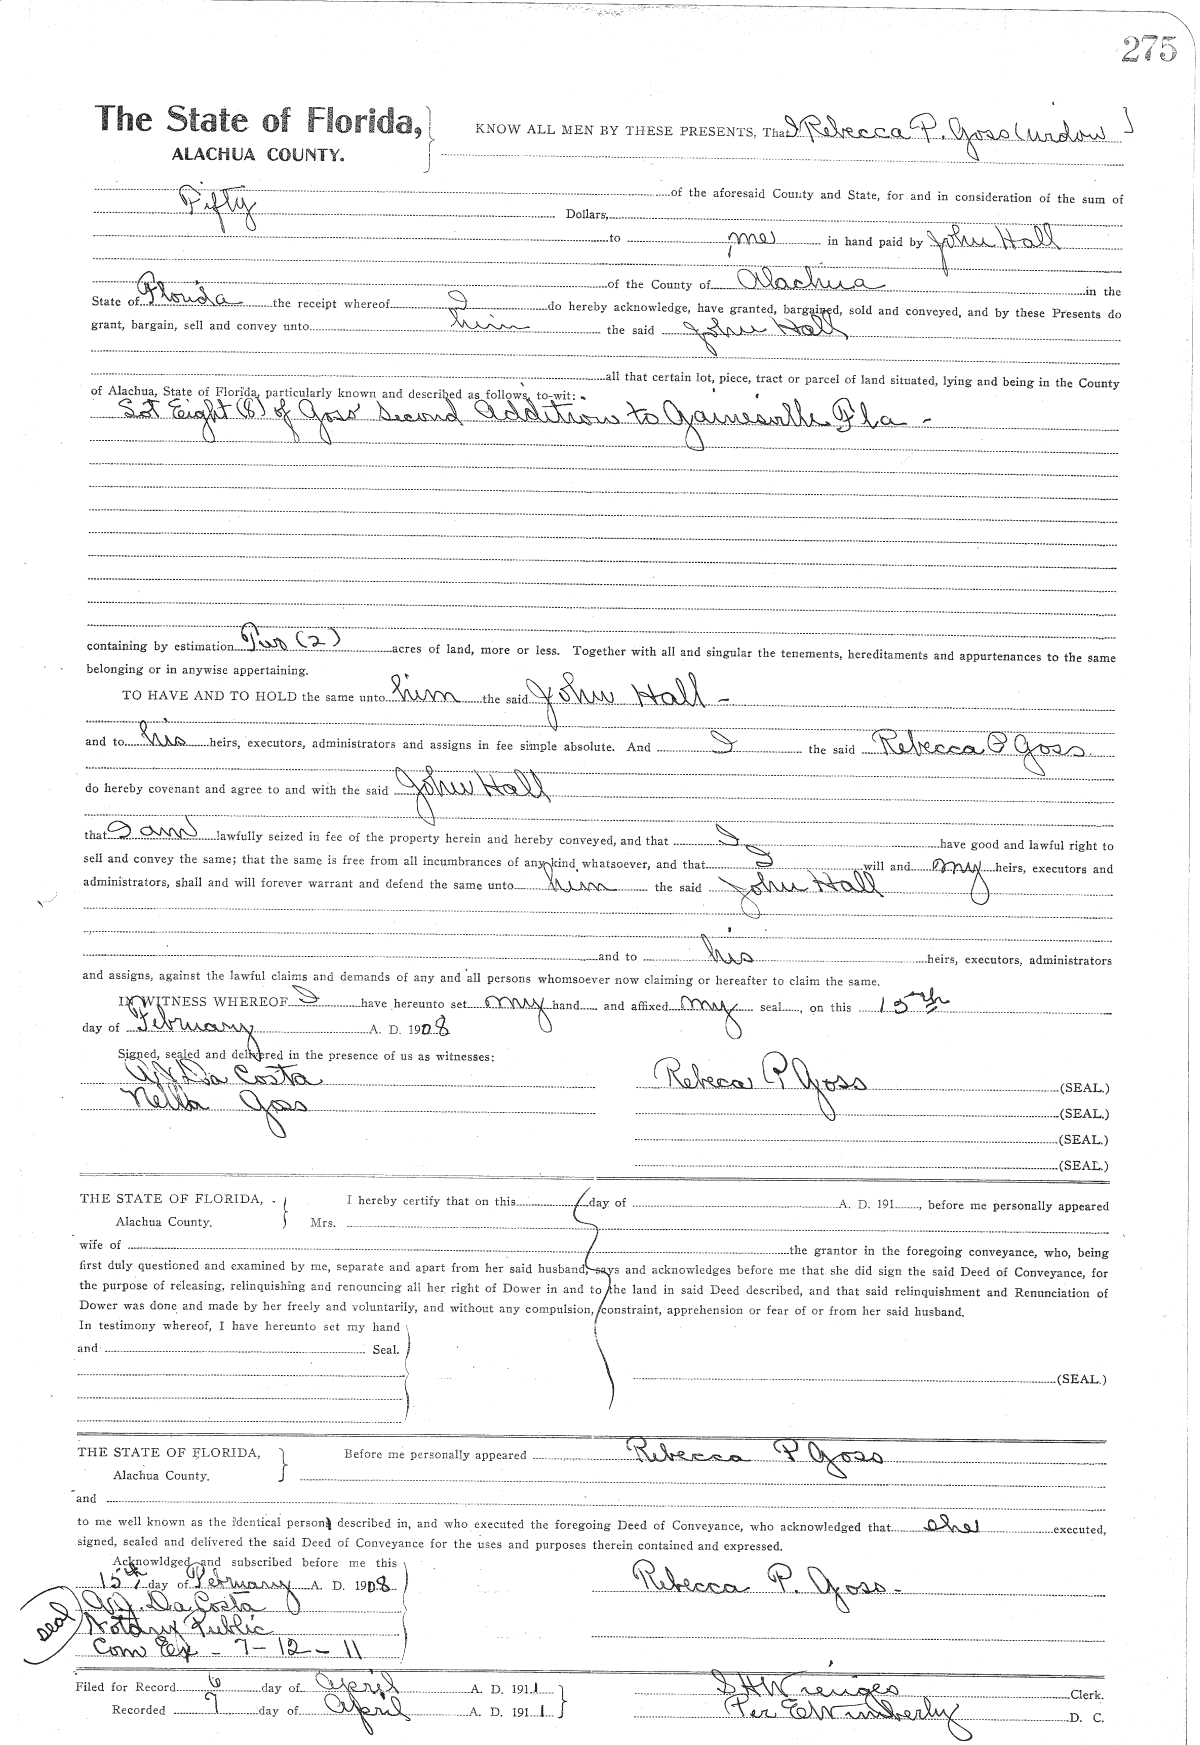 275
The State of Florida, KNOW ALL MEN BY THESE PRESENTS, That I Rebecca P. Goss (widow)
ALACHUA COUNTY.
of the aforesaid County and State, for and in consideration of the sum of
Fifty Dollars,
to me in hand paid by John Hall
of the County of Alachua in the
State of Florida the receipt whereof I do hereby acknowledge, have granted, bargained, sold and conveyed, and by these Presents do
grant, bargain, sell and convey unto him the said John Hall
all that certain lot, piece, tract or parcel of land situated, lying and being in the County
of Alachua, State of Florida, particularly known and described as follows, to-wit:
Lot Eight (8) of Goss' Second Addition to Gainesville Fla -
containing by estimation Two (2) acres of land, more or less. Together with all and singular the tenements, hereditaments and appurtenances to the same
belonging or in anywise appertaining.
TO HAVE AND TO HOLD the same unto him the said John Hall -
and to his heirs, executors, administrators and assigns in fee simple absolute. And I the said Rebecca P Goss
do hereby covenant and agree to and with the said John Hall
that I am lawfully seized in fee of the property herein and hereby conveyed, and that I have good and lawful right to
sell and convey the same; that the same is free from all incumbrances of any kind whatsoever, and that I will and my heirs, executors and
administrators, shall and will forever warrant and defend the same unto him the said John Hall
and to his heirs, executors, administrators
and assigns, against the lawful claims and demands of any and all persons whomsoever now claiming or hereafter to claim the same.
IN WITNESS WHEREOF I have hereunto set my hand and affixed my seal, on this 15th
day of February A. D. 1908
Signed, sealed and delivered in the presence of us as witnesses:
Da Costa Rebeca P Goss (SEAL.)
Nella Goss (SEAL.)
(SEAL.)
(SEAL.)
THE STATE OF FLORIDA, I hereby certify that on this day of A. D. 191 , before me personally appeared
Alachua County. Mrs.
wife of the grantor in the foregoing conveyance, who, being
first duly questioned and examined by me, separate and apart from her said husband, says and acknowledges before me that she did sign the said Deed of Conveyance, for
the purpose of releasing, relinquishing and renouncing all her right of Dower in and to the land in said Deed described, and that said relinquishment and Renunciation of
Dower was done and made by her freely and voluntarily, and without any compulsion, constraint, apprehension or fear of or from her said husband.
In testimony whereof, I have hereunto set my hand
and Seal.
(SEAL.)
THE STATE OF FLORIDA, Before me personally appeared Rebecca P Goss
Alachua County.
and
to me well known as the identical person described in, and who executed the foregoing Deed of Conveyance, who acknowledged that she executed,
signed, sealed and delivered the said Deed of Conveyance for the uses and purposes therein contained and expressed.
Acknowldged and subscribed before me this
15th day of February A. D. 1908 Rebecca P. Goss -
seal Da Costa
Notary Public
Com Ex - 7-12-11
Filed for Record 6 day of April A. D. 1911 S H Wienges Clerk.
Recorded 7 day of April A. D. 1911 Per E Wimberly D. C.